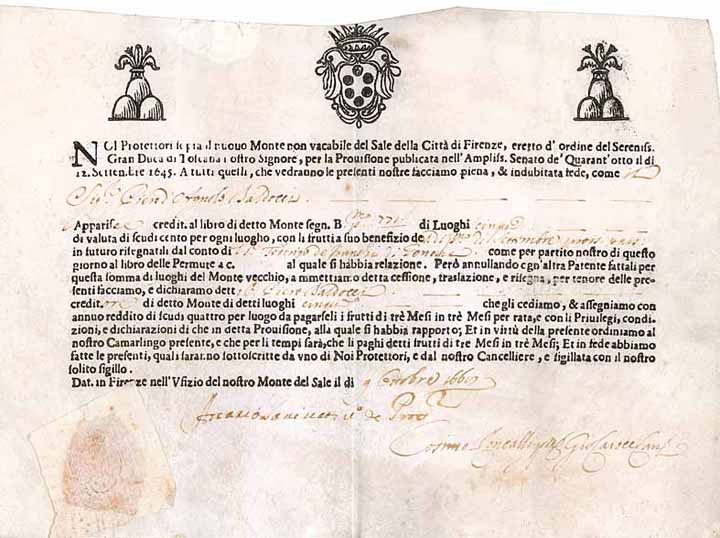 NOI Protettori sopra il nuouo Monte non vacabile del Sale della Città di Firenze, eretto d'ordine del Sereniss.
Gran Duca di Toscana nostro Signore, per la Prouisione publicata nell'Ampliss. Senato de' Quarant'otto il di
12. Settembre 1645. A tutti quelli, che vedranno le presenti nostre facciamo piena, & indubitata fede, come
Baldocci
Apparisce credit. al libro di detto Monte segn. B 771 di Luoghi cinque
di valuta di scudi cento per ogni luogho, con li frutti a suo benefizio de
in futuro risegnatili dal conto di come per partito nostro di questo
giorno al libro delle Permute a c. al quale si habbia relazione. Però annullando ogn'altra Patente fattali per
questa somma di luoghi del Monte vecchio, ammettiamo detta cessione, traslazione, e risegna, per tenore delle pre-
senti facciamo, e dichiaramo dett Baldocci
credit. di detto Monte di detti luoghi cinque che gli cediamo, & assegniamo con
annuo reddito di scudi quattro per luogo da pagarseli i frutti di tre Mesi in tre Mesi per rata, e con li Priuilegi, condi-
zioni, e dichiarazioni di che in detta Prouisione, alla quale si habbia rapporto; Et in virtù della presente ordiniamo al
nostro Camarlingo presente, e che per li tempi sarà, che li paghi detti frutti di tre Mesi in tre Mesi; Et in fede abbiamo
fatte le presenti, quali saranno sottoscritte da vno di Noi Protettori, e dal nostro Cancelliere, e sigillata con il nostro
solito sigillo.
Dat. in Firenze nell'Vfizio del nostro Monte del Sale il di 9 Ottobre
de
Cosimo